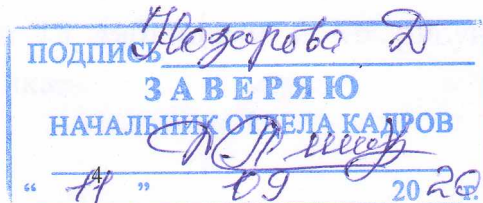 ПОДПИСЬ Назарова Д
ЗАВЕРЯЮ
НАЧАЛЬНИК ОТДЕЛА КАДРОВ
“ 11 ” 09 2020 г.